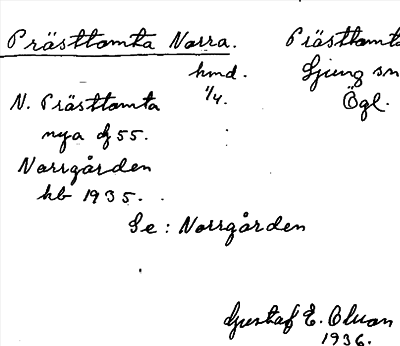 Prästtomta Norra. Prästtomta
hmd. Ljung sn
N. Prästtomta 1/4. Ögl.
nya df 55.
Norrgården
hb 1935.
Se: Norrgården
Gustaf E. Olson
1936.